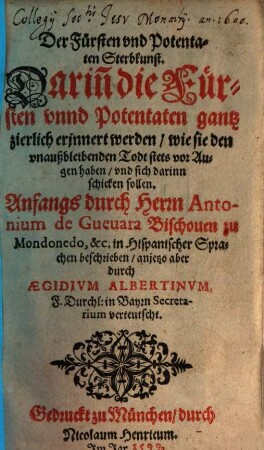 Collegij Soc.tis Jesu Monachij. an. 1600.
Der Fürsten vnd Potenta-
ten Sterbkunst.
Dariñ die Für-
sten vnnd Potentaten gantz
zierlich erjnnert werden / wie sie den
vnaußbleibenden Todt stets vor Au-
gen haben / vnd sich darinn
schicken sollen.
Anfangs durch Herrn Anto-
nium de Gueuara Bischouen zu
Mondonedo, &c. in Hispanischer Spra-
chen beschrieben / anjetzo aber
durch
ÆGIDIVM ALBERTINVM,
F. Durchl: in Bayrn Secreta-
rium verteutscht.
Gedruckt zu München / durch
Nicolaum Henricum.
Im Jar 1599.